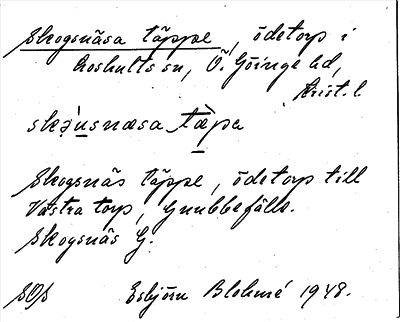 Skogsnäsa täppe, ödetorp i
Loshults sn, Ö. Göinge hd,
Krist. l
skəu̇snæsa tæ̀pa
Skogsnäs täppe, ödetorp till
Västra torp, Gnubbefälls.
Skogsnäs G.
Esbjörn Blohmé 1948.